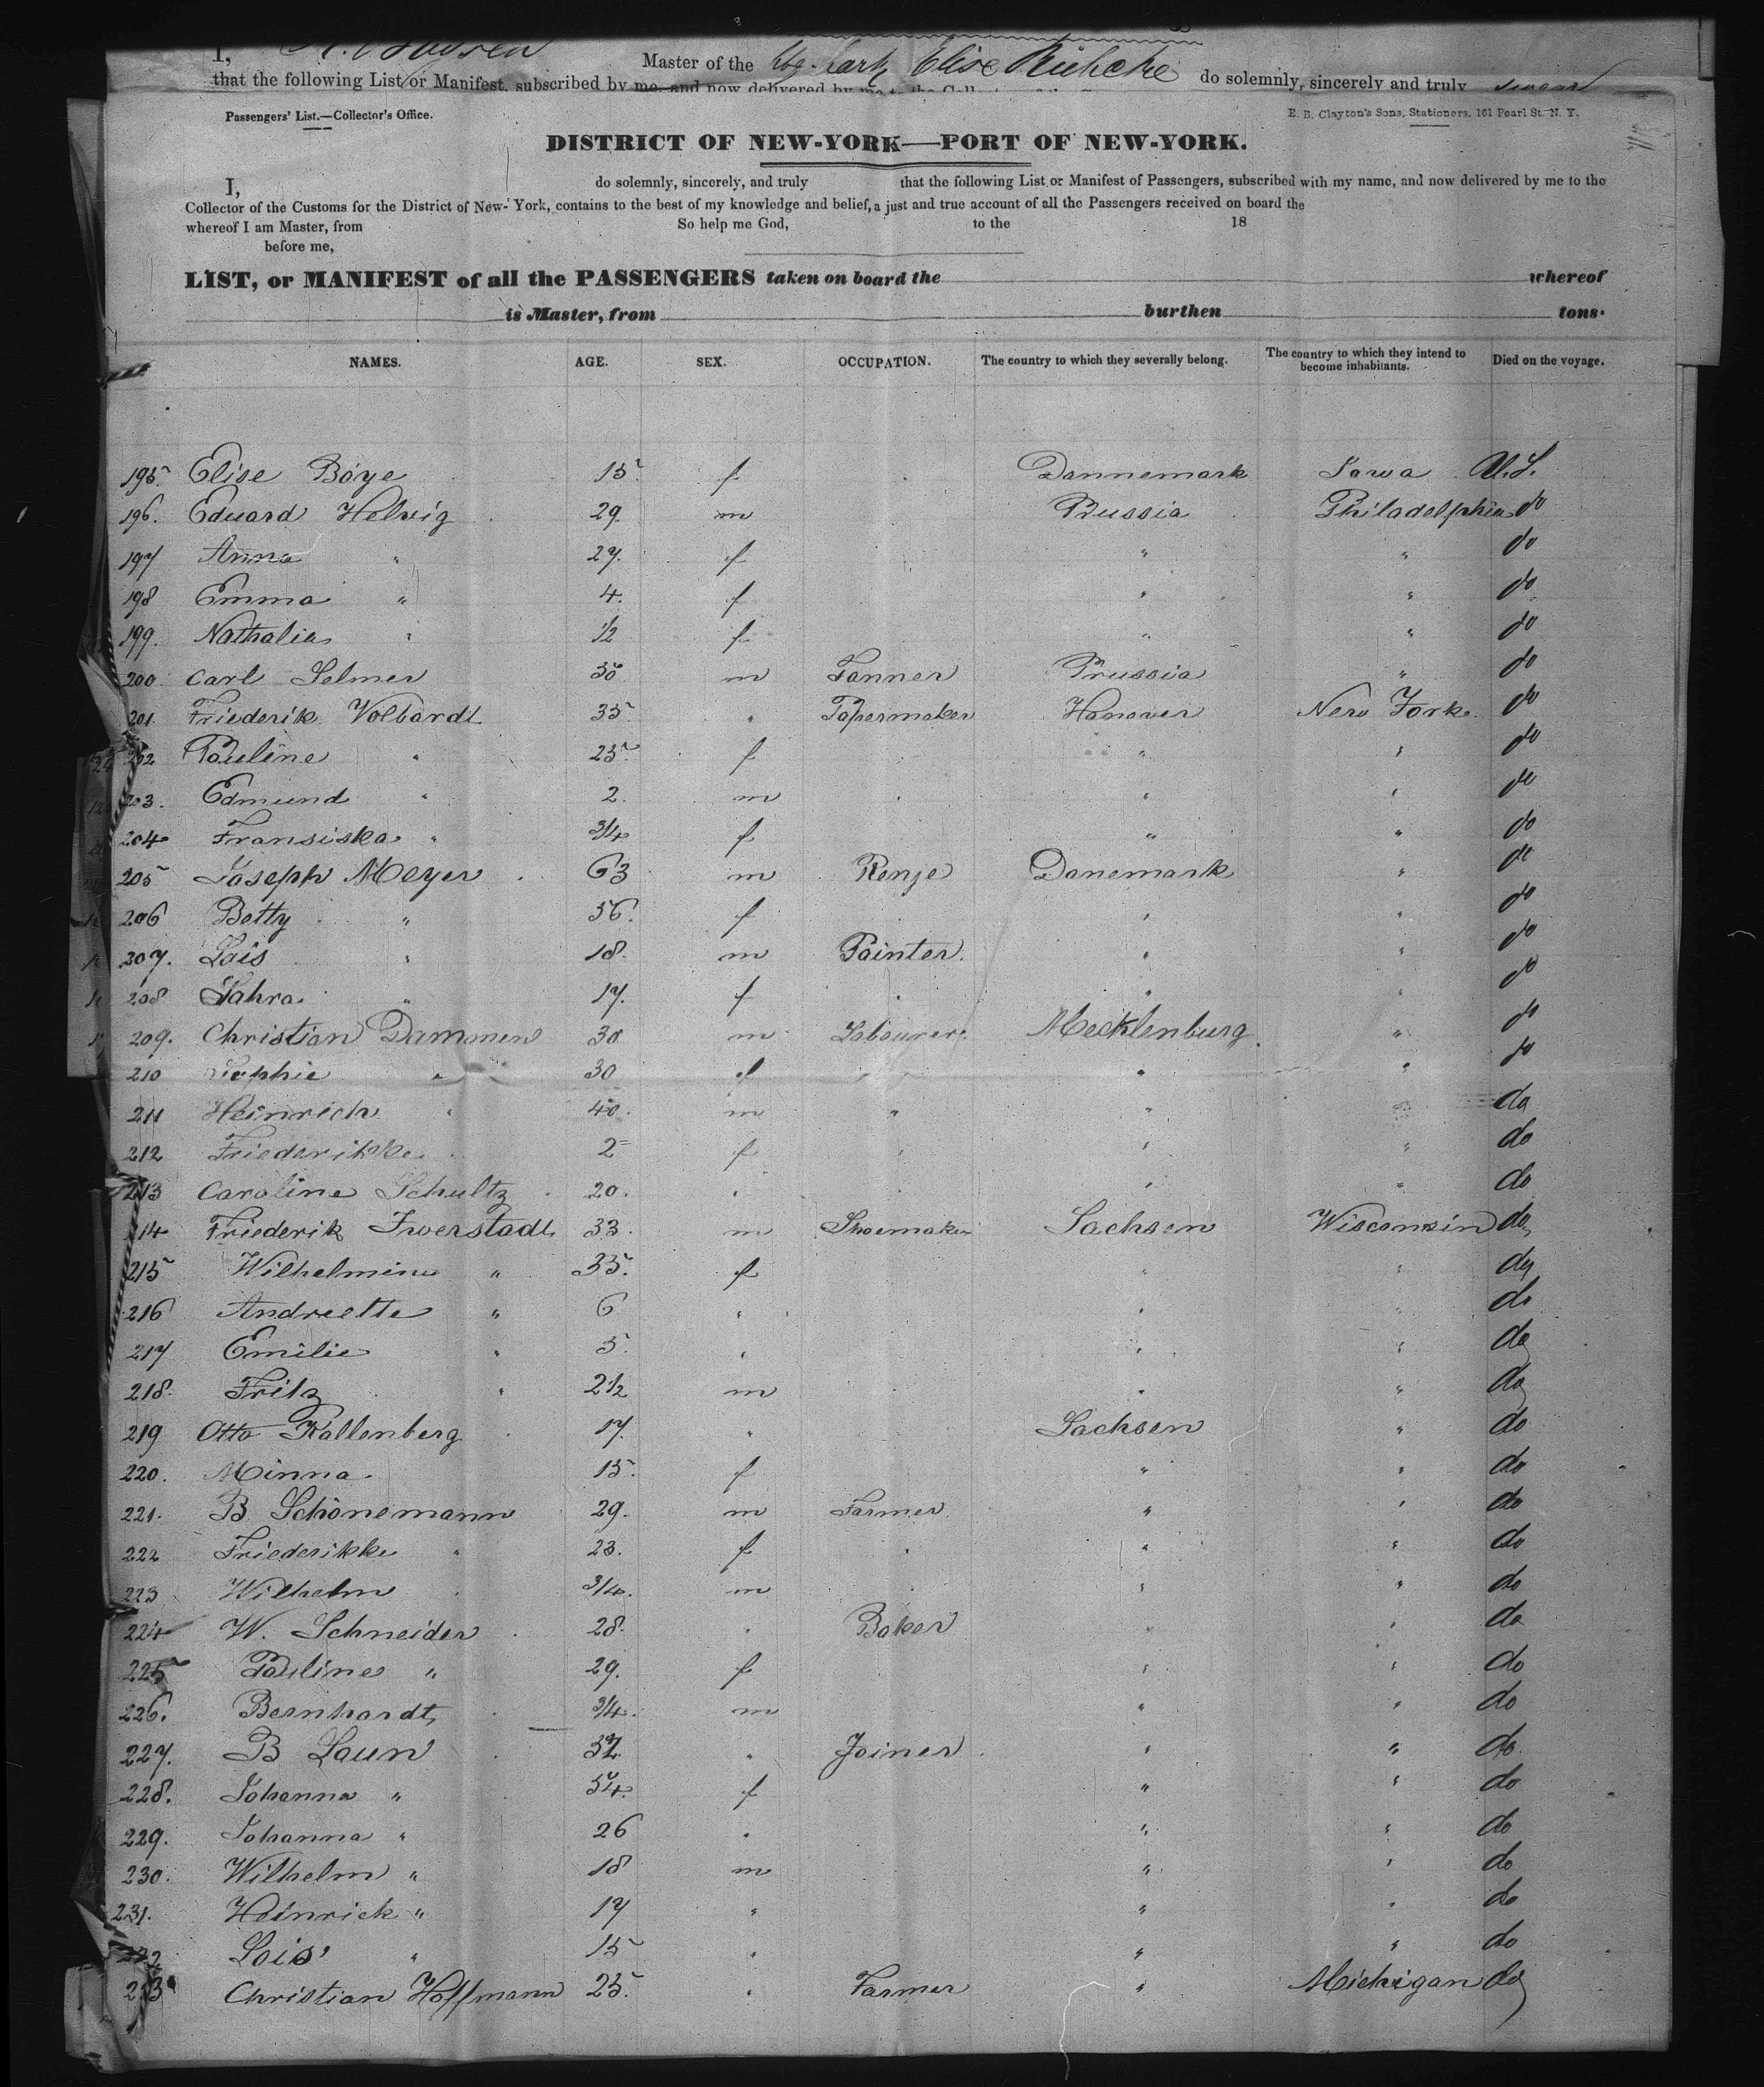 I, Master of the Hbg. bark Elise Rübcke do solemnly, sincerely and truly swear
that the following List or Manifest, subscribed by me, and now delivered by me to the
Passengers' List.—Collector's Office. E. B. Clayton's Sons, Stationers, 161 Pearl St. N. Y.
DISTRICT OF NEW-YORK—PORT OF NEW-YORK.
I, do solemnly, sincerely, and truly that the following List or Manifest of Passengers, subscribed with my name, and now delivered by me to the
Collector of the Customs for the District of New-York, contains to the best of my knowledge and belief, a just and true account of all the Passengers received on board the
whereof I am Master, from So help me God, to the 18
before me,
LIST, or MANIFEST of all the PASSENGERS taken on board the whereof
is Master, from burthen tons.
NAMES. AGE. SEX. OCCUPATION. The country to which they severally belong. The country to which they intend to become inhabitants. Died on the voyage.
195. Elise Böye 15. f Dannemark Iowa U.S.
196. Eduard Helwig 29 m Prussia Philadelphia do
197 Anna " 27. f " " do
198 Emma " 4. f " " do
199. Nathalia " 1/2 f " " do
200. Carl Selmer 30 m Tanner Prussia " do
201. Friederik Volbardt 35 " Papermaker Hanover New York do
202 Pauline " 25. f " " do
203. Edmund " 2. m " " do
204 Fransiska " 3/4 f " " do
205 Joseph Meyer 63 m Danemark " do
206 Betty " 56. f " " do
207. Lois " 18. m Painter " " do
208 Sahra " 17. f " " do
209. Christian Dammen 30 m Labourer Mecklenburg " do
210 Sophie " 30 f " " do
211 Heinrich " 40. m " " " do
212 Friederikke 2 f " " do
213 Caroline Schultz 20. " " " do
214 Friederik Iwerstadt 33. m Shoemaker Sachsen Wisconsin do
215 Wilhelmine " 35. f " " do
216 Andreette " 6 " " " do
217 Emilie " 5. " " " do
218. Fritz " 2 1/2 m " " do
219 Otto Kallenberg 17. " Sachsen " do
220. Minna 15. f " " do
221. B. Schönemann 29. m Farmer " " do
222 Friederikke " 23. f " " do
223 Wilhelm 3/4. m " " do
224 W. Schneider 28. " Baker " " do
225 Pauline " 29. f " " do
226. Bernhardt 3/4. m " " do
227. B Laun " Joiner " " do
228. Johanna " 54. f " " do
229. Johanna " 26 " " " do
230. Wilhelm " 18 m " " do
231. Heinrich " 17 " " " do
232 Lois " 15 " " " do
233 Christian Hoffmann 25. " Farmer " Michigan do